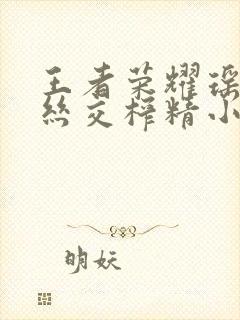 王者荣耀瑶
丝交榨精小
明妖